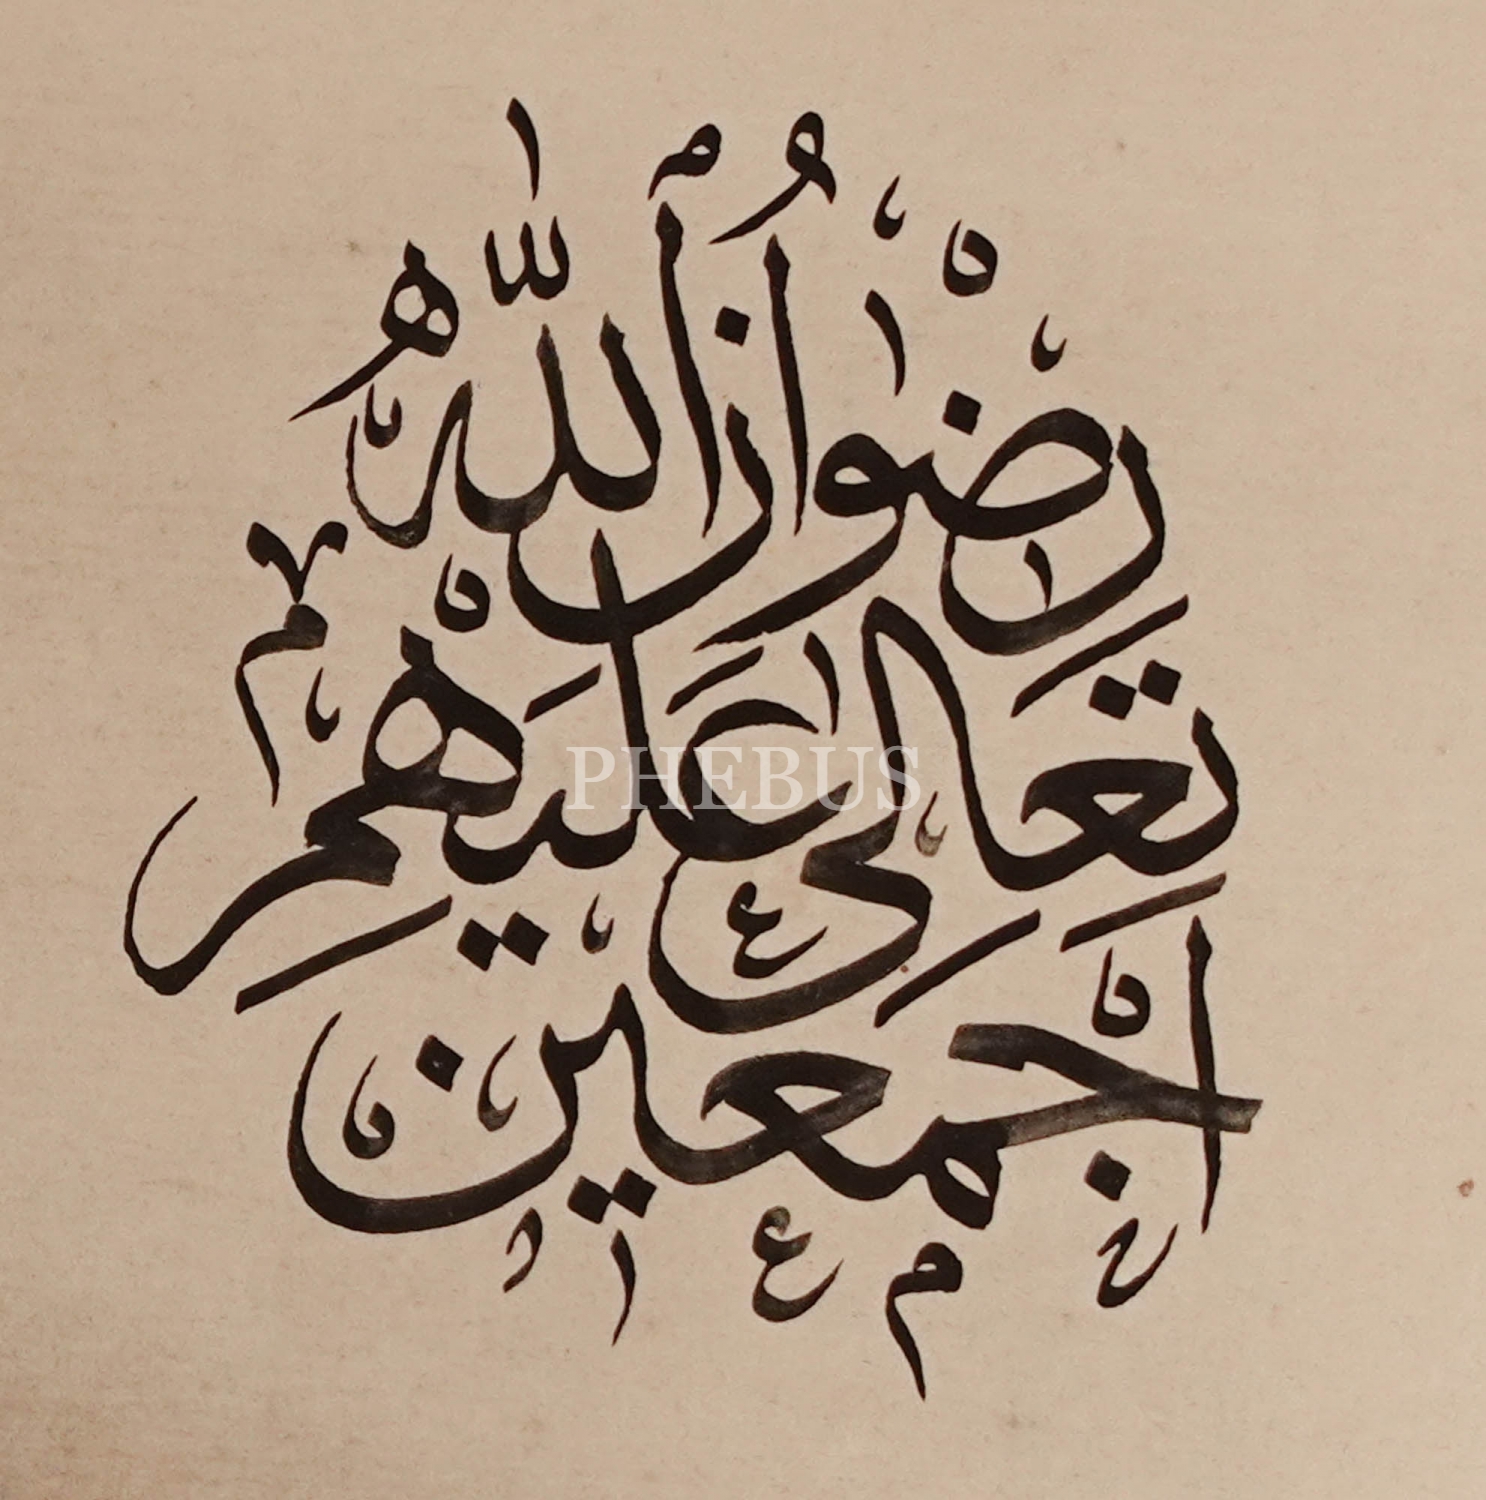 رضوان الله
تعالى عليهم
اجمعين
PHEBUS